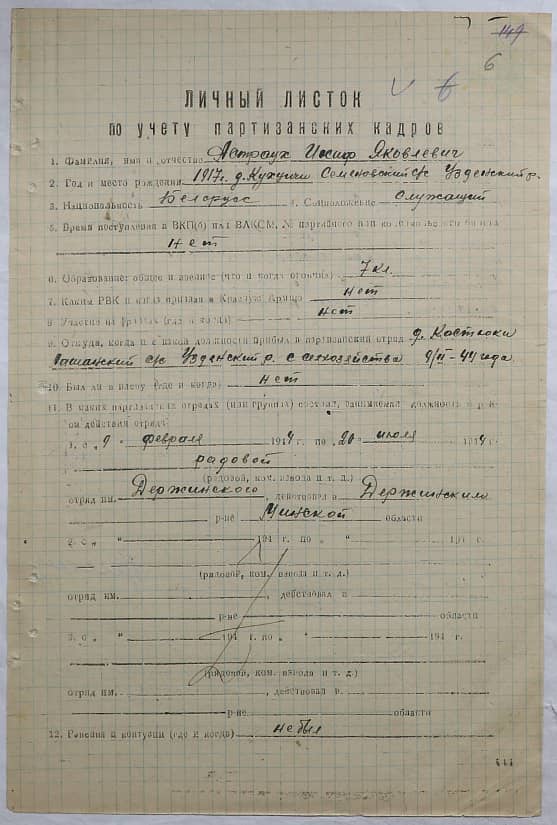 149
6
V 6
ЛИЧНЫЙ ЛИСТОК
по учету партизанских кадров
1. Фамилия, имя и отчество Астраух Иосиф Яковлевич
2. Год и место рождения 1917г. д. Кухтичи Семеновский с/с Узденский р.
3. Национальность Беларусс 4. Соцположение Служащий
5. Время поступления в ВКП(б) или ВЛКСМ, № партийного или комсомольского билета
Нет
6. Образование: общее и военное (что и когда окончил) 7 кл
7. Каким РВК и когда призван в Красную Армию нет
8. Участие на фронтах (где и когда) нет
9. Откуда, когда и с какой должности прибыл в партизанский отряд д. Костюки
с/с Узденский р. с сельхозяйства 9/II-44 года
10. Был ли в плену (где и когда) нет
11. В каких партизанских отрядах (или группах) состоял, занимаемая должность и рай-
он действия отряда:
1. с „9“ февраля 1944 г по „20“ июля 1944 г.
радовой
(рядовой, ком. взвода и т. д.)
отряд им. Держинского, действовал в Держинским
р-не Минской области
2. с „ “ 194 г. по „ “ 194 г.
(рядовой, ком. взвода и т. д.)
отряд им. , действовал в
р-не области
3. с „ “ 194 г. по „ “ 194 г.
(рядовой, ком. взвода и т. д.)
отряд им. , действовал в
р-не области
12. Ранения и контузии (где и когда) не был